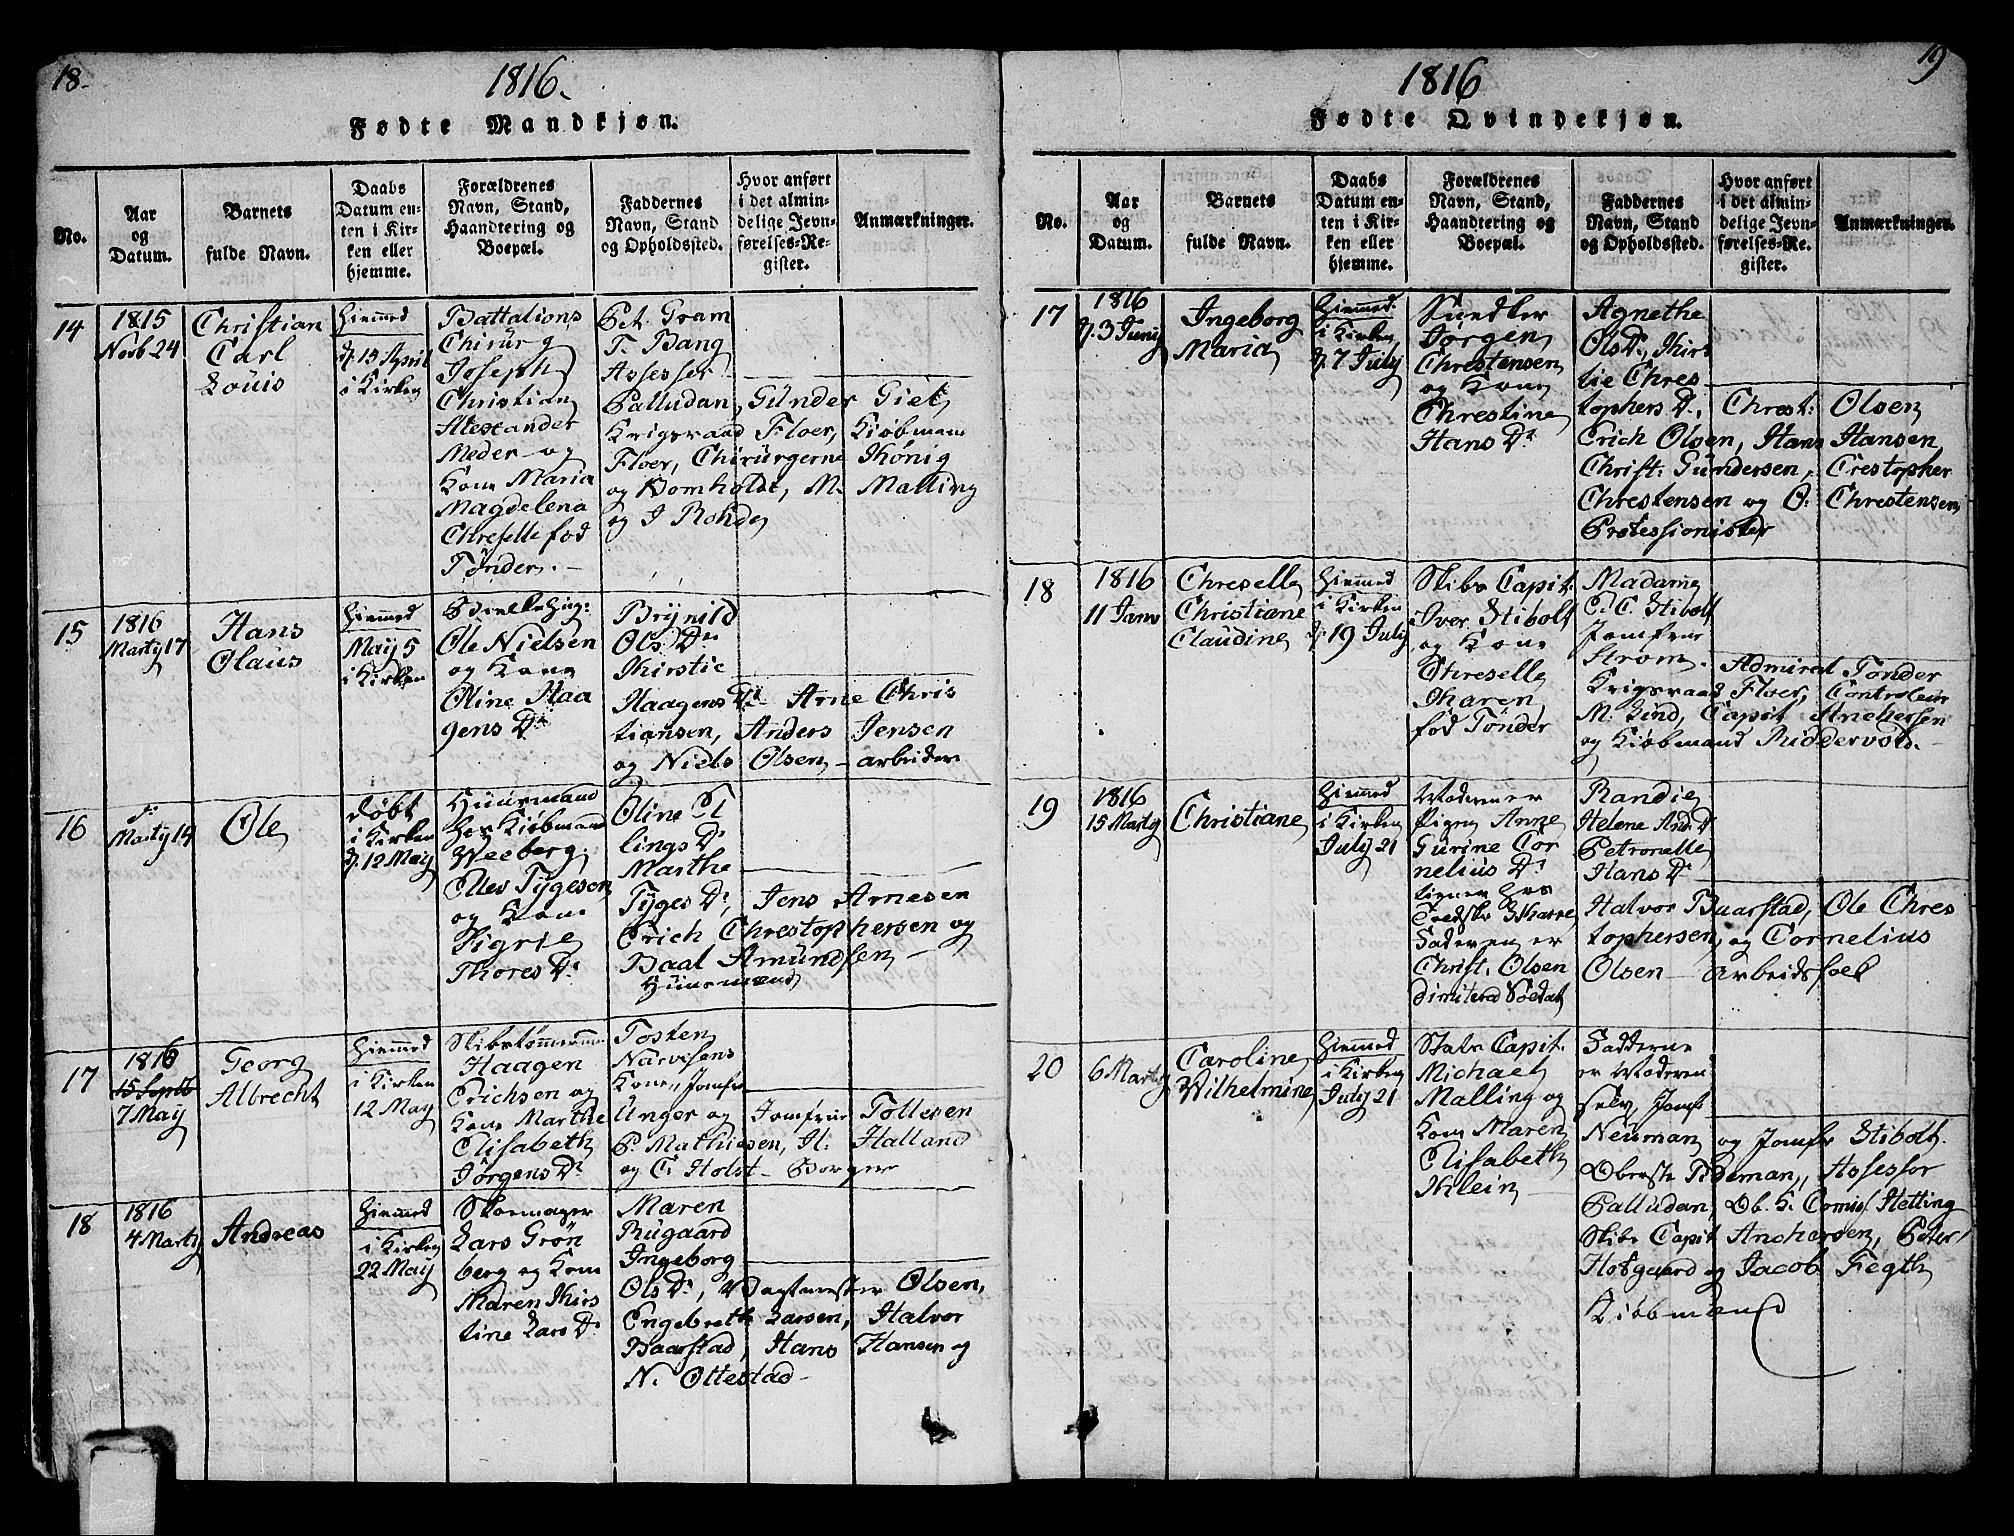 18.
1816.
Fødte Mandkjøn.
No.
Aar
og
Datum.
Barnets
fulde Navn.
Daabs
Datum en-
ten i Kir-
ken eller
hjemme.
Forældrenes
Navn, Stand,
Haandtering og
Boepæl.
Faddernes
Navn, Stand
og Opholdssted.
Hvor anført
i det almin-
delige Jevn-
førelses-Re-
gister.
Anmærkninger.
14
1815
Novb 24
Christian
Carl
Louis
Hiemmed
d. 15 April
i Kirken
Battalions
Chirurg
Joseph
Christian
Alexander
Meder og
Kone Maria
Magdelena
Chreselle fød
Tønder.
Pet. Gram
T. Bang
Assesser
Palludan, Günder Giet
Krigsraad Floer, Kiøbmænd
Floer, Chirurgerne König
og Bomholdt, M. Malling
og J Rohde
15
1816
Marty 17
Hans
Olaus
Hiemmed
May 5
i Kirken
Ole Nielsen
og Kone
Oline Haa
gens Dr
Brynild
Ols Dr
Kirstie
Haagens Dr Arne Chris
tiansen, Anders Jensen
og Niels Olsen - arbeidere
16
Marty 14
Ole
døbt
i Kirken
d. 12 May
Huusmand
hos Kiøbmand
Weeberg
Elev Tygesen
og Kone
Sigrie
Thores Dr
Oline El
lings Dr
Marthe
Tyges Dr, Jens Arnesen
Erich Chrestophersen og
Baal Amundsen
Huusmænd
17
1816
15 Septb
7 May
Georg
Albrecht
Hiemmed
i Kirken
12 May
Skibstømmermand
Haagen
Erichsen og
Kone Marthe
Elisabeth
Jørgens Dr
Tosten
Narvesens
Kone, Jomfr
Unger og Jomfrue Tollesen
P. Mathiesen, H. Halland
og C. Holst - Borgere
18
1816
4 Marty
Andreas
Hiemmed
i Kirken
22 May
Skoemager
Lars Grøn
berg og Kone
Maren Kirs
tine Lars Dr
Maren
Rugaard
Ingeborg
Ols Dr, Vagtmester Olsen,
Engebreth Larsen, Halvor
Baarstad, Hans Hansen og
N. Ottestad
19
1816
Fødte Qvindekjøn.
No.
Aar
og
Datum.
Barnets
fulde Navn.
Daabs
Datum en-
ten i Kir-
ken eller
hjemme.
Forældrenes
Navn, Stand,
Haandtering og
Boepæl.
Faddernes
Navn, Stand
og Opholdssted.
Hvor anført
i det almin-
delige Jevn-
førelses-Re-
gister.
Anmærkninger.
17
1816
d. 3 Juny
Ingeborg
Maria
Hiemmed
i Kirken
d. 7 July
Sundker
Jørgen
Chrestensen
og Kone
Chrestine
Hans Dr
Agnethe
Ols Dr, Kirs
tie Chres
tophers Dr, Chrest: Olsen
Erich Olsen, Hans Hansen
Christ: Gundersen, Crestopher
Chrestensen og O: Chrestensen
Professionister
18
1816
11 Janv
Chreselle
Christiane
Claudine
Hiemmed
i Kirken
d. 19 July
Skibs Capit:
Iver Stibolt
og Kone
Chreselle
Karen
fød Tønder
Madame
C. C. Stibolt
Jomfrue
Strøm. Admiral Tønder
Krigsraad Floer, Controleur
M. Lind, Capit Anchersen
og Kiøbmand Riddervold.
19
1816
15 Marty
Christiane
Hiemmed
i Kirken
July 21
Moderen er
Pigen Anne
Gurine Cor
nelius Dr
tiener hos
Fredsk Skarre,
Faderen er
Christ. Olsen
dimiterd Soldat
Randie
Helene And. Dr
Petronelle
Hans Dr
Halvor Baarstad, Ole Chres
tophersen, og Cornelius
Olsen - arbeidsfolk
20
6 Marty
Caroline
Wilhelmine
Hiemmed
i Kirken
July 21
Stabs Capit.
Michael
Malling og
Kone Maren
Elisabeth
Klein
Fadderne
er Moderen
selv, Jomf
Neuman og Jomfr Stibolt.
Oberste Tideman, Assessor
Palludan, Ob. K. Comis. Hetting
Skibs Capit Anchersen, Peter
Hofgaard og Jacob Fegth
Kiøbmænd